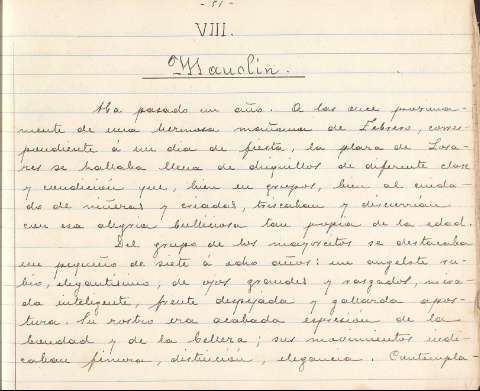 - 51 -
VIII.
Manolin.
Ha pasado un año. A las once proxima-
mente de una hermosa mañana de Febrero, corres-
pondiente á un dia de fiesta, la plaza de
se hallaba llena de chiquillos de diferente clase
y condición que, bien en grupos, bien al cuida-
do de niñeras y criadas, triscaban y discurrían
con esa alegria bulliciosa tan propia de la edad.
Del grupo de los mayorcitos se destacaba
un pequeño de siete á ocho años: un angelote ru-
bio, elegantisimo, de ojos grandes y rasgados, mira-
da inteligente, frente despejada y gallarda apos-
tura. Su rostro era acabada expresión de la
bondad y de la belleza; sus movimientos indi-
caban finura, distinción, elegancia. Contempla-